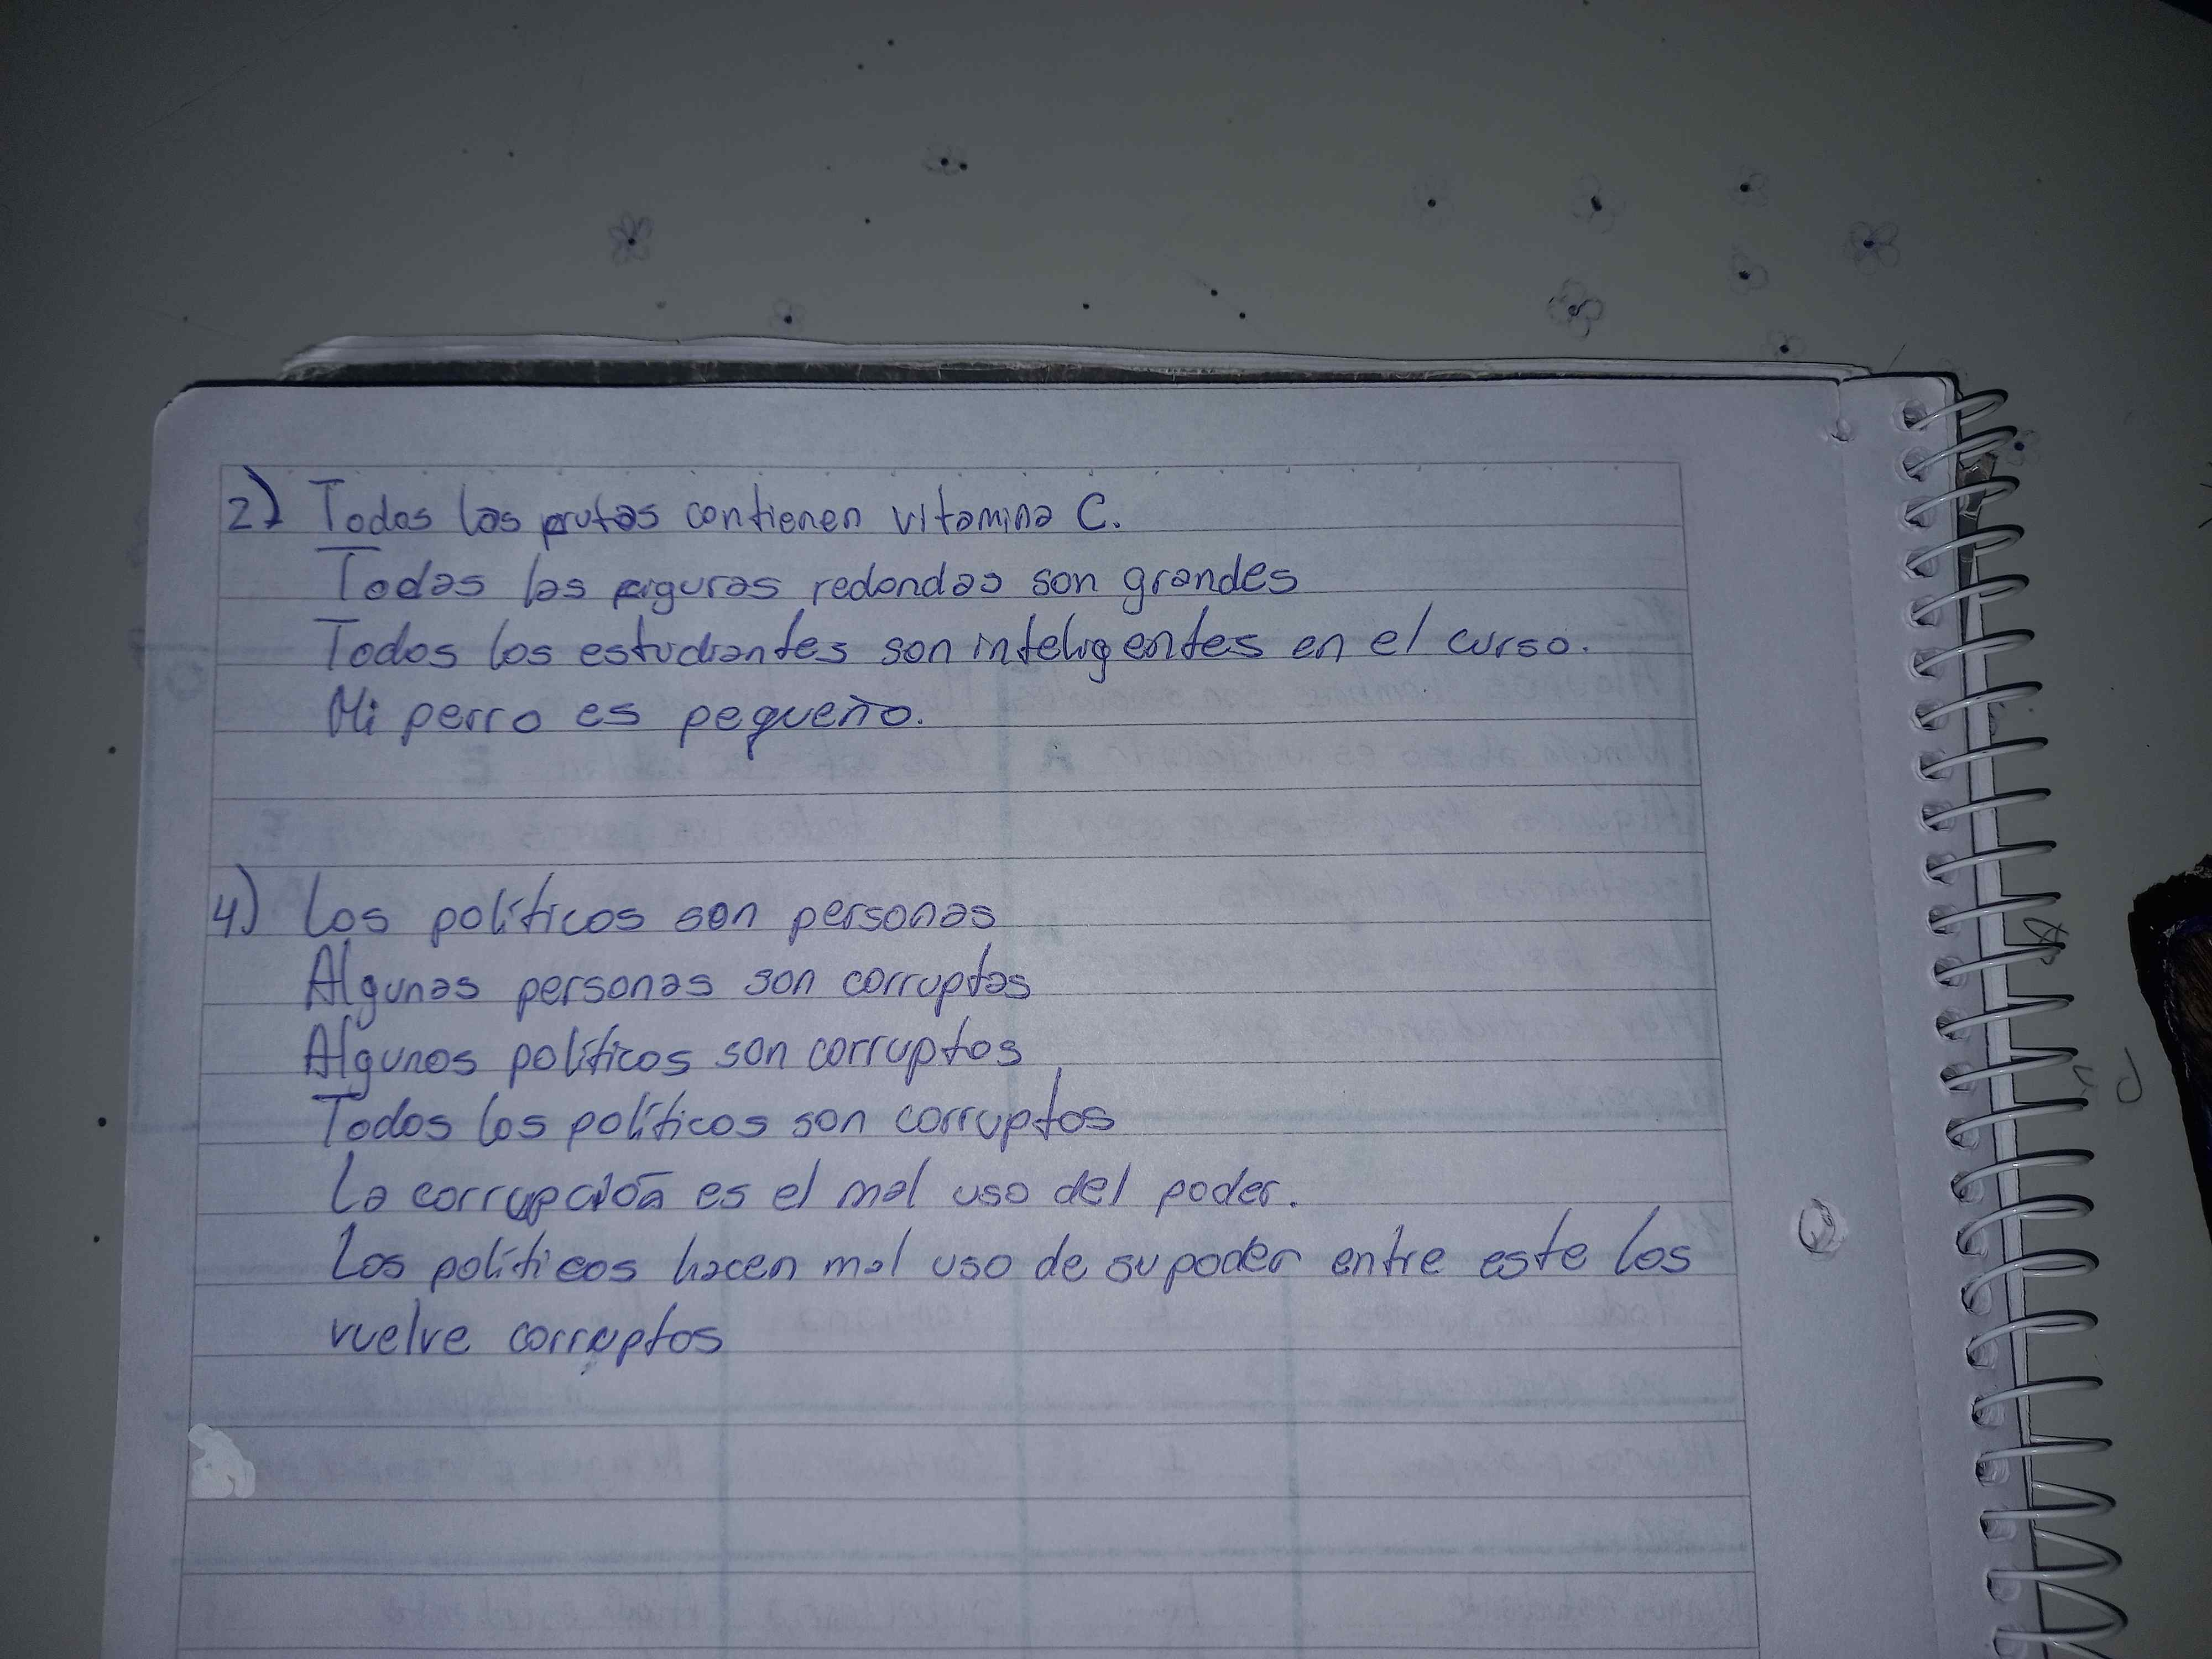 2) Todas las frutas contienen vitamina C.
Todas las figuras redondas son grandes
Todos los estudiantes son inteligentes en el curso.
Mi perro es pequeño.
4) Los políticos son personas
Algunas personas son corruptas
Algunos políticos son corruptos
Todos los políticos son corruptos
La corrupción es el mal uso del poder.
Los políticos hacen mal uso de su poder entre este los
vuelve corruptos